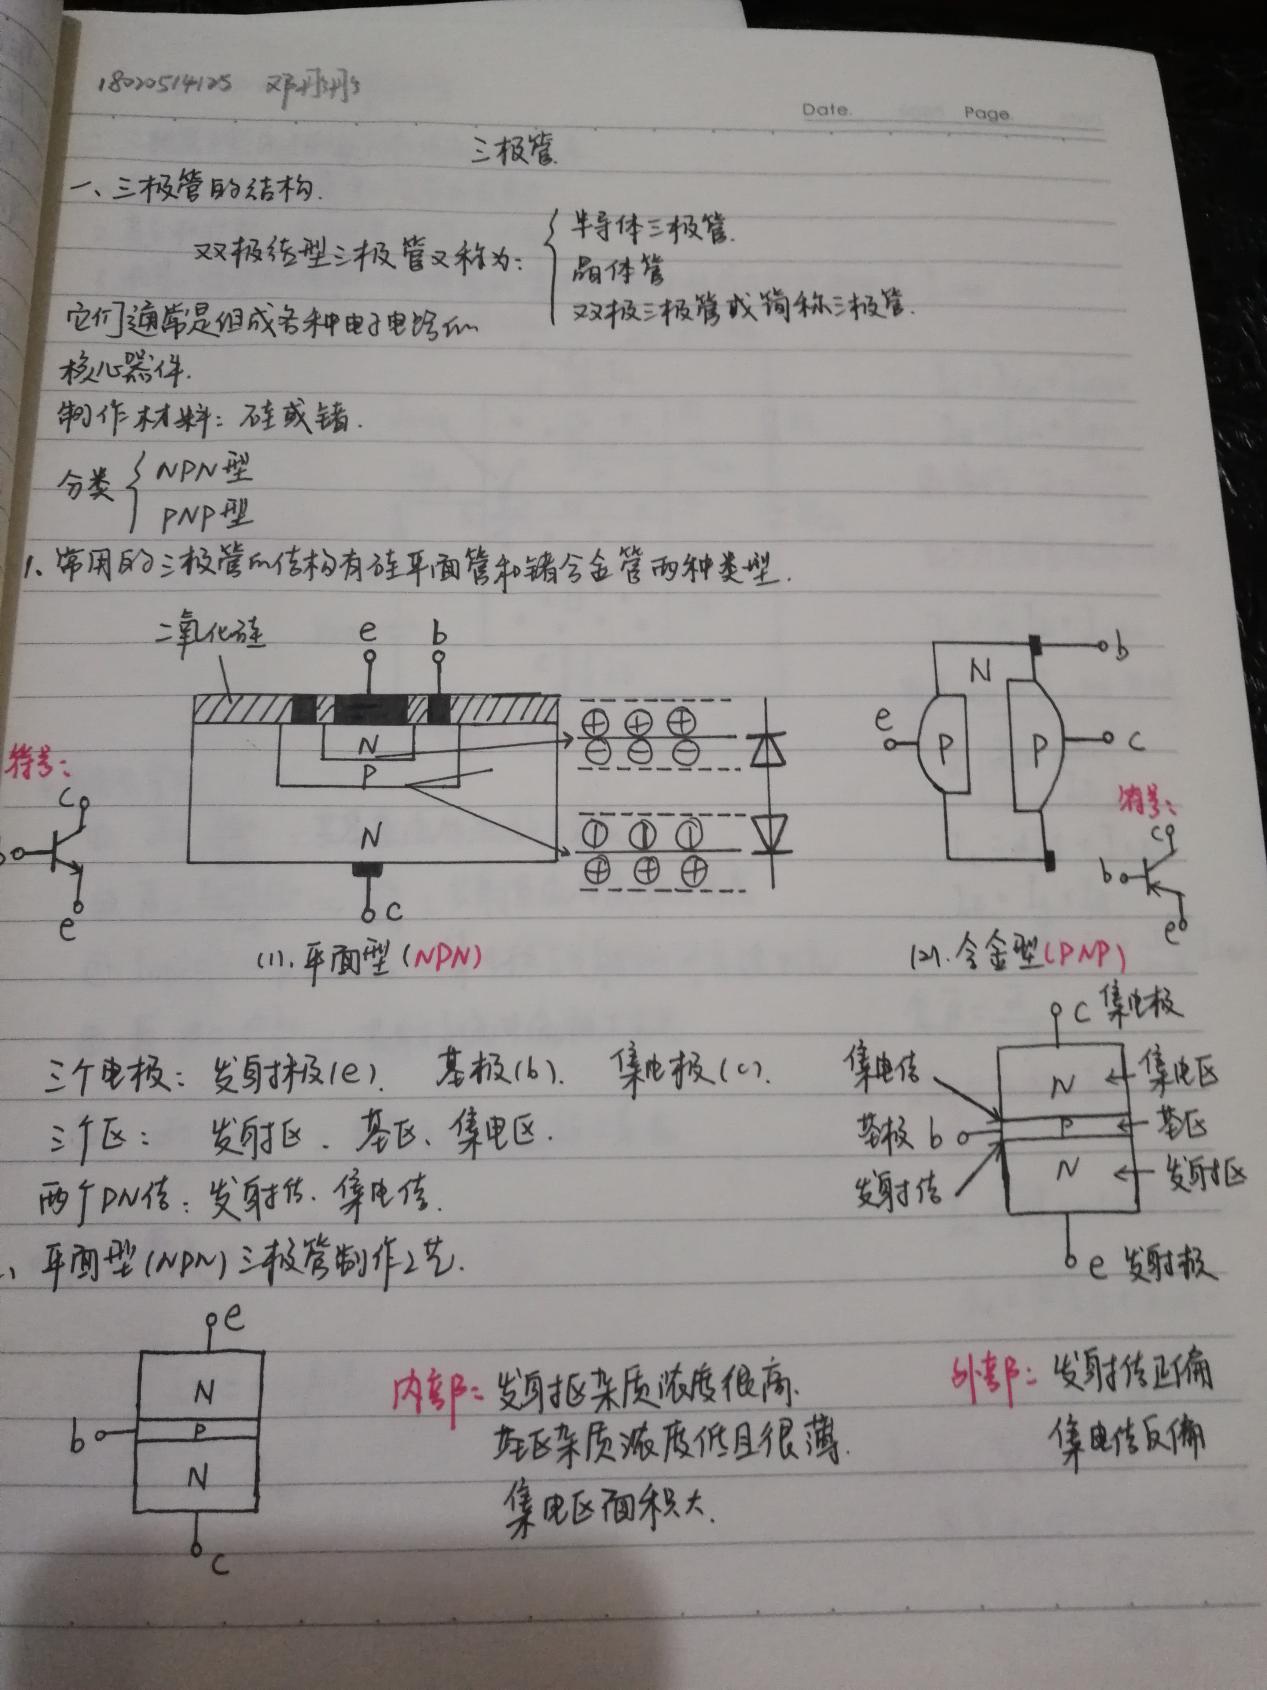 18020514125 邓彤彤
Date. Page.
三极管.
一、三极管的结构.
双极结型三极管又称为:
半导体三极管.
晶体管
双极三极管或简称三极管.
它们通常是组成各种电子电路的
核心器件.
制作材料: 硅或锗.
分类
NPN型
PNP型
1、常用的三极管的结构有硅平面管和锗合金管两种类型.
二氧化硅
e b
N
P
N
c
符号:
c
b
e
(1). 平面型(NPN)
N
b
e
P P
c
符号:
c
b
e
(2). 合金型(PNP)
三个电极: 发射极(e). 基极(b). 集电极(c).
三个区: 发射区、基区、集电区.
两个PN结: 发射结、集电结.
c 集电极
集电结
N
集电区
基极 b
P
基区
发射结
N
发射区
e 发射极
、平面型(NPN)三极管制作工艺.
e
N
b
P
N
c
内部: 发射区杂质浓度很高.
基区杂质浓度低且很薄.
集电区面积大.
外部: 发射结正偏
集电结反偏